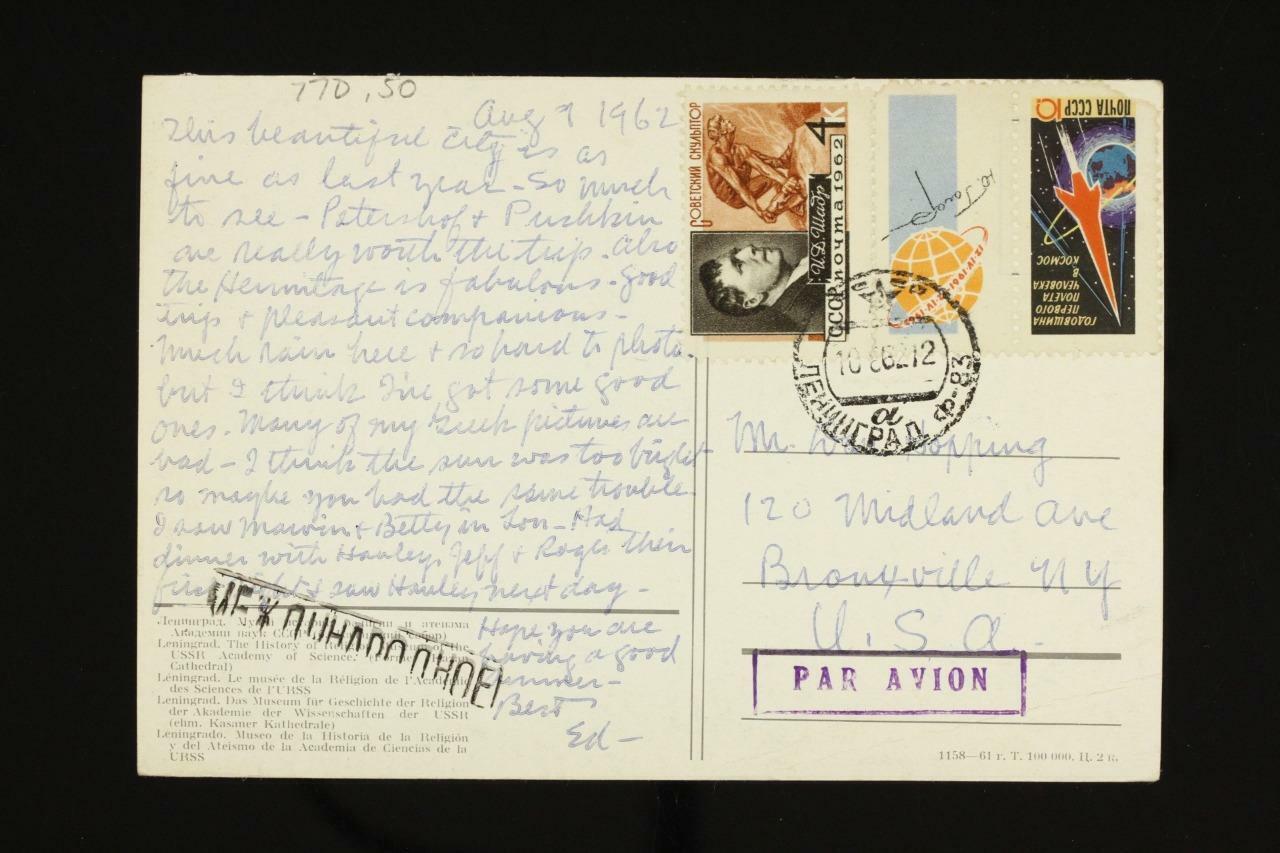 770.50
Aug 9 1962
This beautiful city is as
fine as last year - So much
to see - Petershof & Pushkin
are really worth the trip. Also
the Hermitage is fabulous - Good
trip & pleasant companions -
Much rain here & so hard to photo.
but I think I've got some good
ones. Many of my Greek pictures are
bad - I think the sun was too bright
so maybe you had the same trouble.
I saw Marvin & Betty in Lon - Had
dinner with Hanley, Jeff & Roger their
first night & saw Hanley next day -
Hope you are
having a good
summer -
Best
Ed -
Ленинград. Музей истории религии и атеизма
Академии наук СССР
Leningrad. The History of Religion Museum of the
USSR Academy of Science.
Cathedral)
Léningrad. Le musée de la Réligion de l'Académie
des Sciences de l'URSS
Leningrad. Das Museum für Geschichte der Religion
der Akademie der Wissenschaften der USSR
(ehm. Kasaner Kathedrale)
Leningrado. Museo de la Historia de la Religión
y del Ateismo de la Academia de Ciencias de la
URSS
МЕЖДУНАРОДНОЕ
СОВЕТСКИЙ СКУЛЬПТОР
4К
И.Д. Шадр
СССР. почта 1962
12-IV-1961
ПОЧТА СССР
10
ГОДОВЩИНА
ПЕРВОГО
ПОЛЕТА
ЧЕЛОВЕКА
В
КОСМОС
10 8 62 12
ЛЕНИНГРАД Ф-83
а
Mr. Topping
120 Midland Ave
Bronxville NY
U.S.A.
PAR AVION
1158—61 г. Т. 100 000. Ц. 2 к.